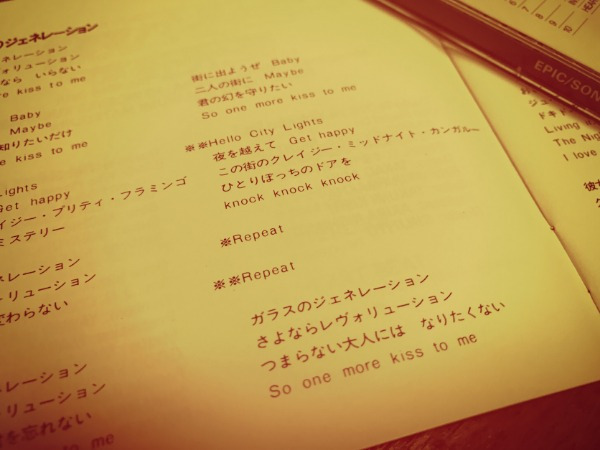 のジェネレーション
ネレーション
ヴォリューション
なら いらない
re kiss to me
Baby
Maybe
知りたいだけ
e kiss to me
Lights
Get happy
イジー・プリティ・フラミンゴ
ミステリー
レーション
リューション
変わらない
ネレーション
リューション
を忘れない
to me
街に出ようぜ Baby
二人の街に Maybe
君の幻を守りたい
So one more kiss to me
※※Hello City Lights
夜を越えて Get happy
この街のクレイジー・ミッドナイト・カンガルー
ひとりぼっちのドアを
knock knock knock
※Repeat
※※Repeat
ガラスのジェネレーション
さよならレヴォリューション
つまらない大人には なりたくない
So one more kiss to me
EPIC/SON
6
7
8
9
10
ジュ
ドキド
Living
The Nig
I love
彼